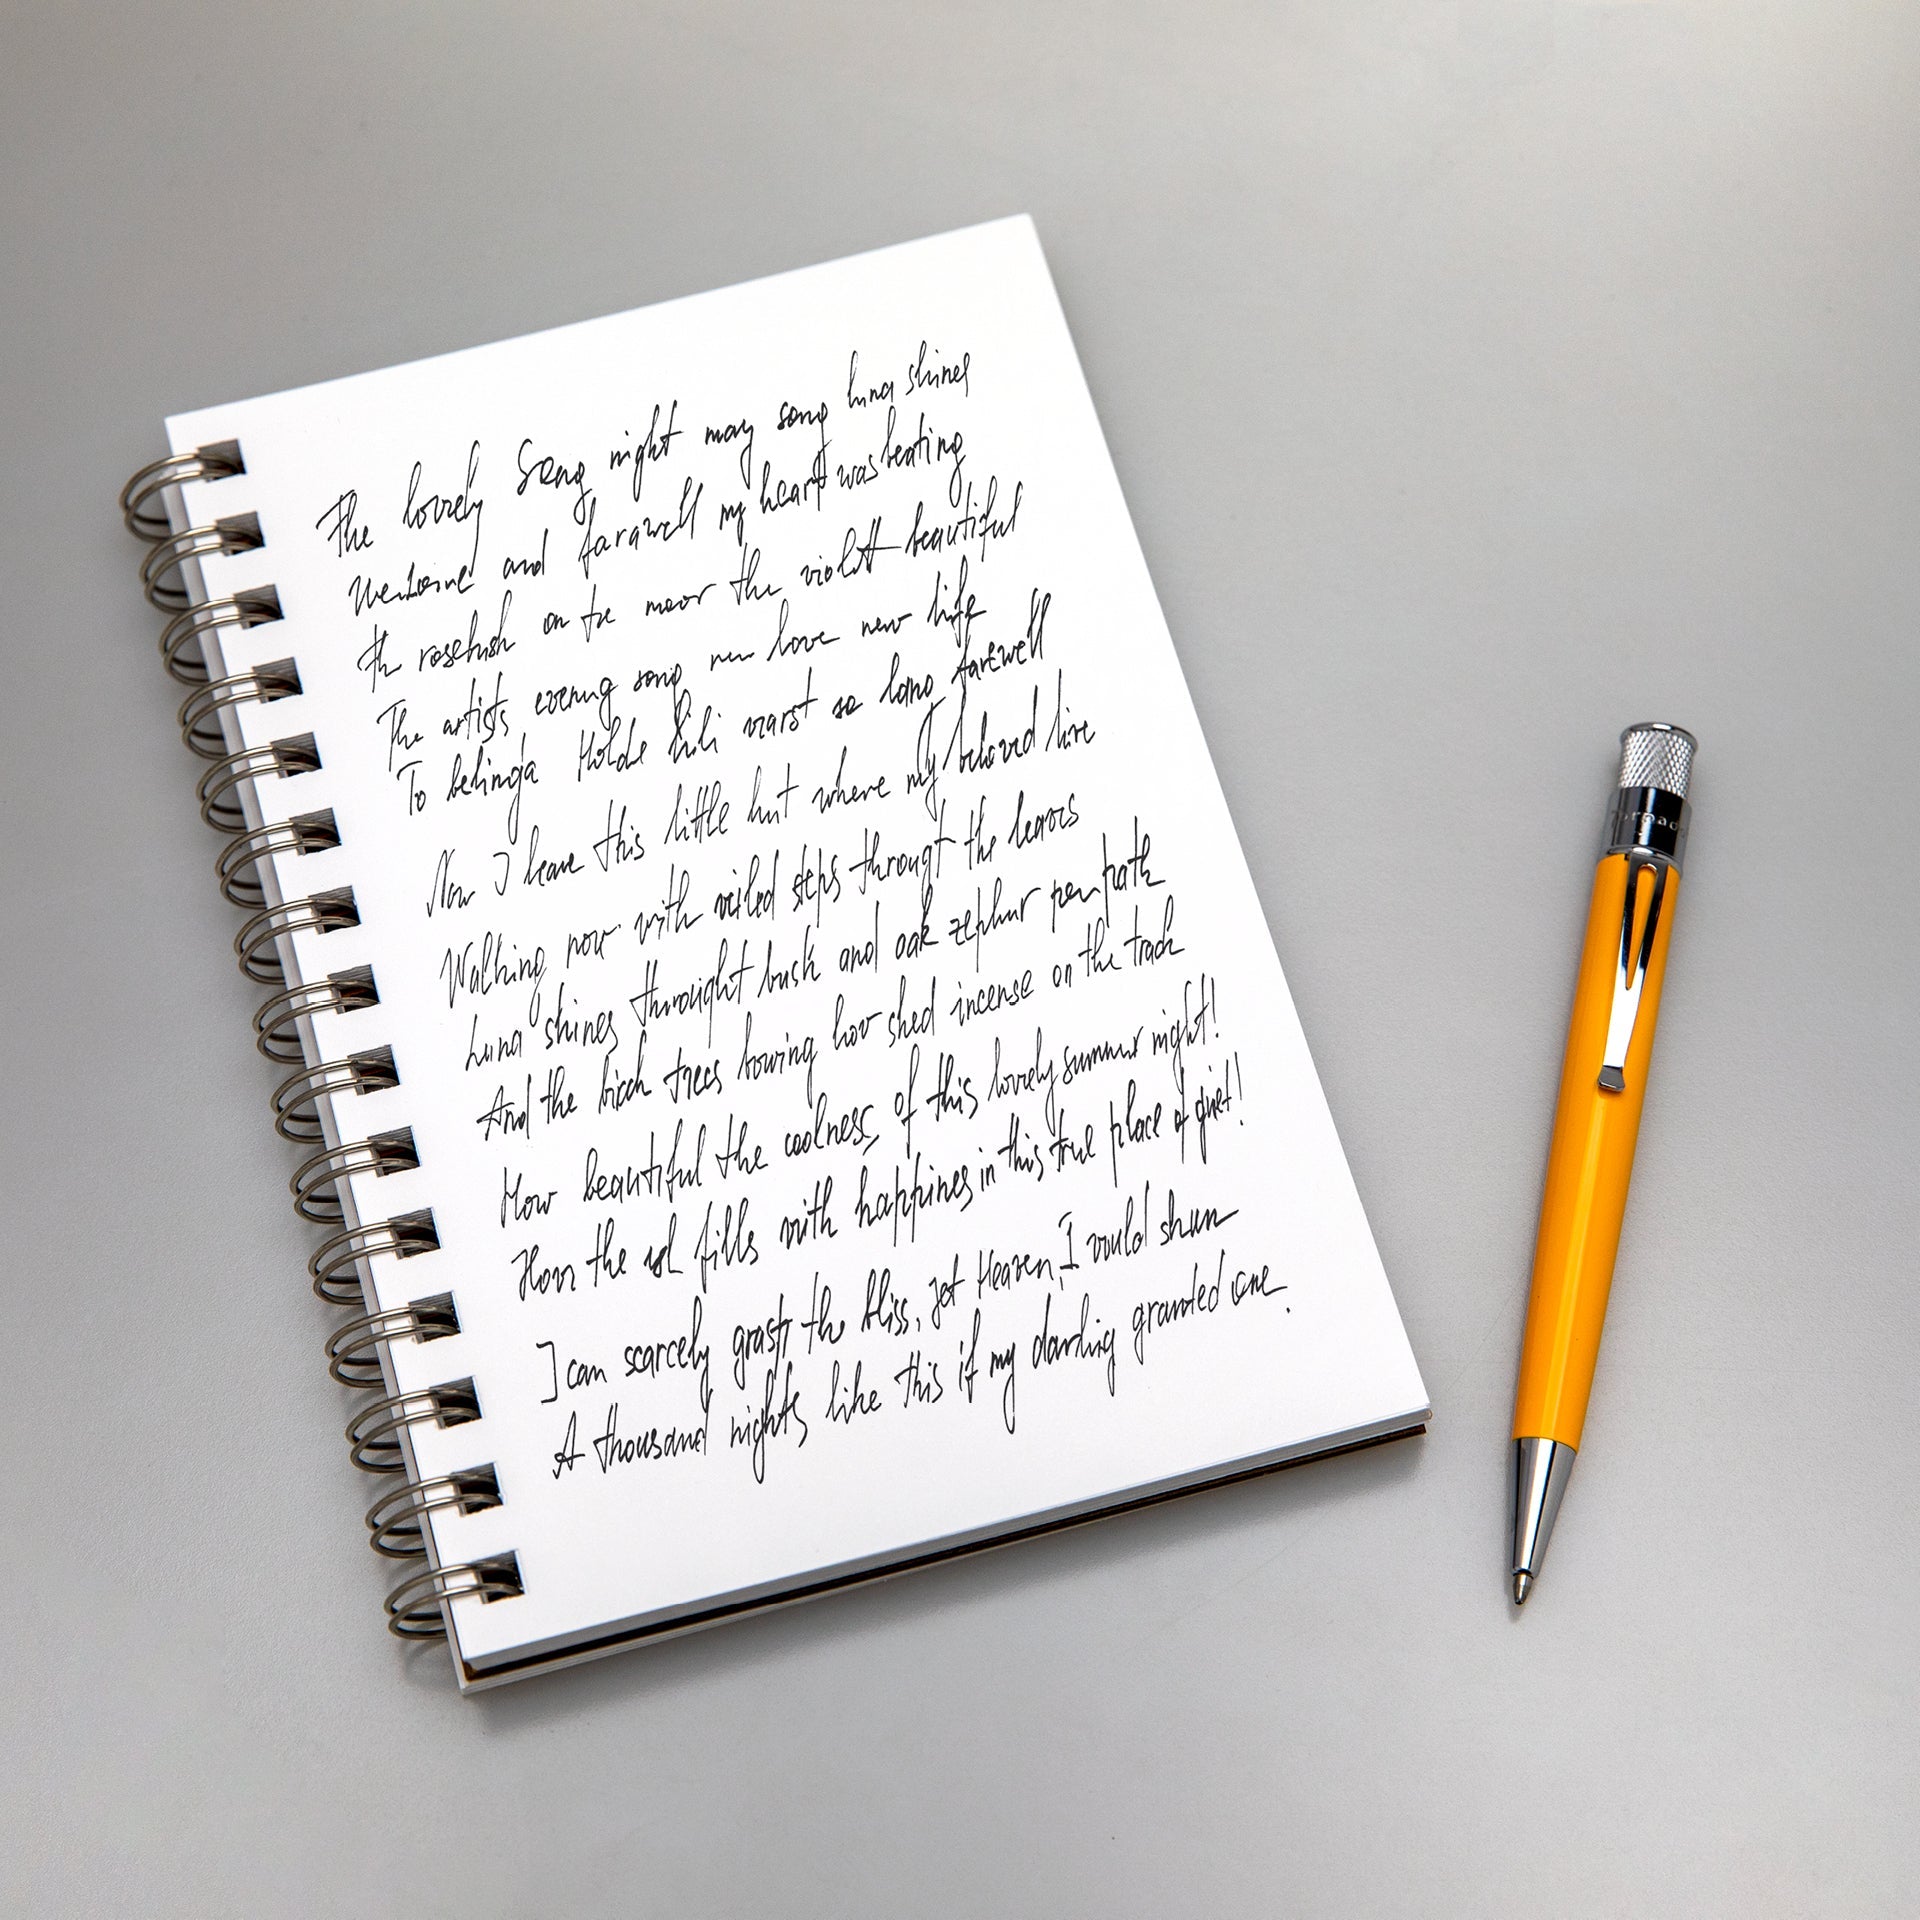 The lovely Song night may song luna shines
Welcome and farawell my heart was beating
Th rosebush on the moor the violett beautiful
The artists evening song new love new life
To belinda Holde Lili warst so lang farewell
Now I leave this little hut where my beloved live
Walking now with veiled steps througt the leaves
Luna shines throught bush and oak zephur path
And the birch trees bowing low shed incense on the track
How beautiful the coolness of this lovely summer night!
How the fills with happines in this true place of quiet!
I can scarcely grasp the bliss, jet Heaven, I would shun
A thousand nights like this if my darling granted one.
Tornado